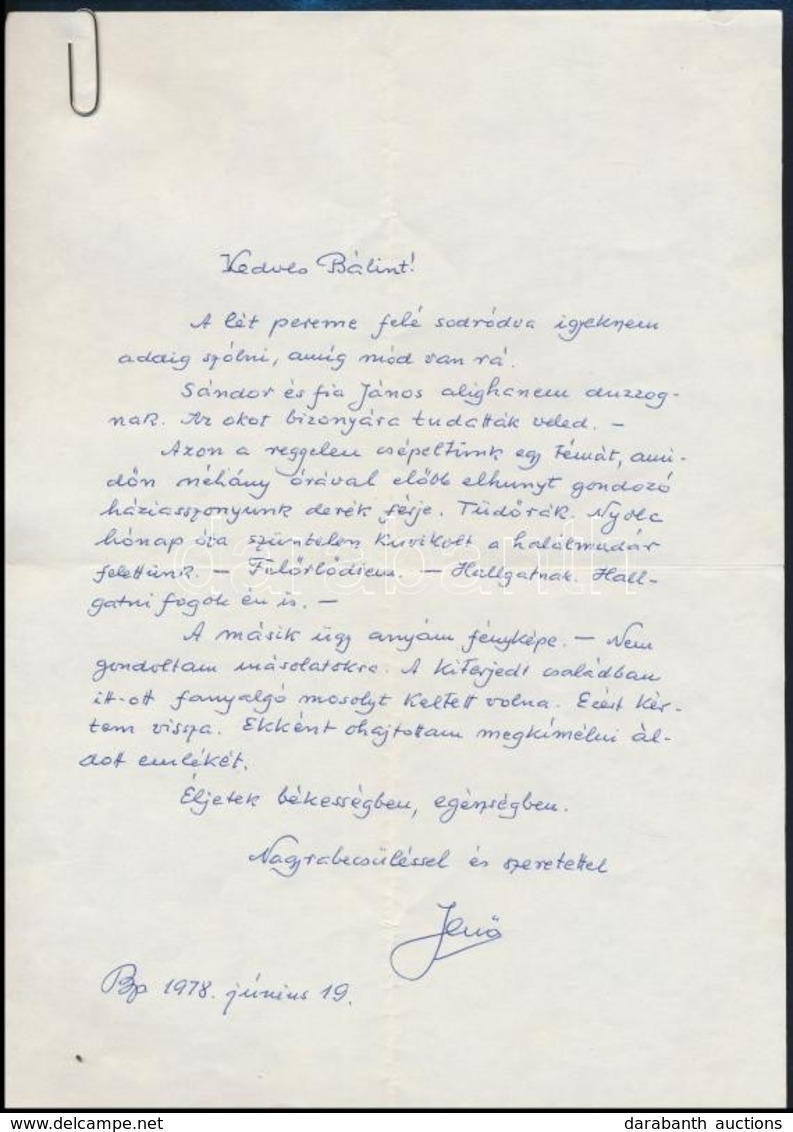 Kedves Bálint!
A lét pereme felé sodródva igyekszem
addig szólni, amíg mód van rá.
Sándor és fia János alighanem duzzog-
nak. Az okot bizonyára tudatták veled. –
Azon a reggelen csépeltünk egy témát, ami-
dőn néhány órával előbb elhunyt gondozó
háziasszonyunk derék férje. Tüdőrák. Nyolc
hónap óta szüntelen kuvikolt a halálmadár
felettünk. – – Hallgatnak. Hall-
gatni fogok én is. –
A másik ügy anyám fényképe. – Nem
gondoltam másolatokra. A kiterjedt családban
itt-ott fanyalgó mosolyt keltett volna. Ezért kér-
tem vissza. Ekként óhajtottam megkímélni ál-
dott emlékét.
Éljetek békességben, egészségben.
Nagyrabecsüléssel és szeretettel
Jenő
Bp 1978. június 19.
darabanth
darabanth auctions